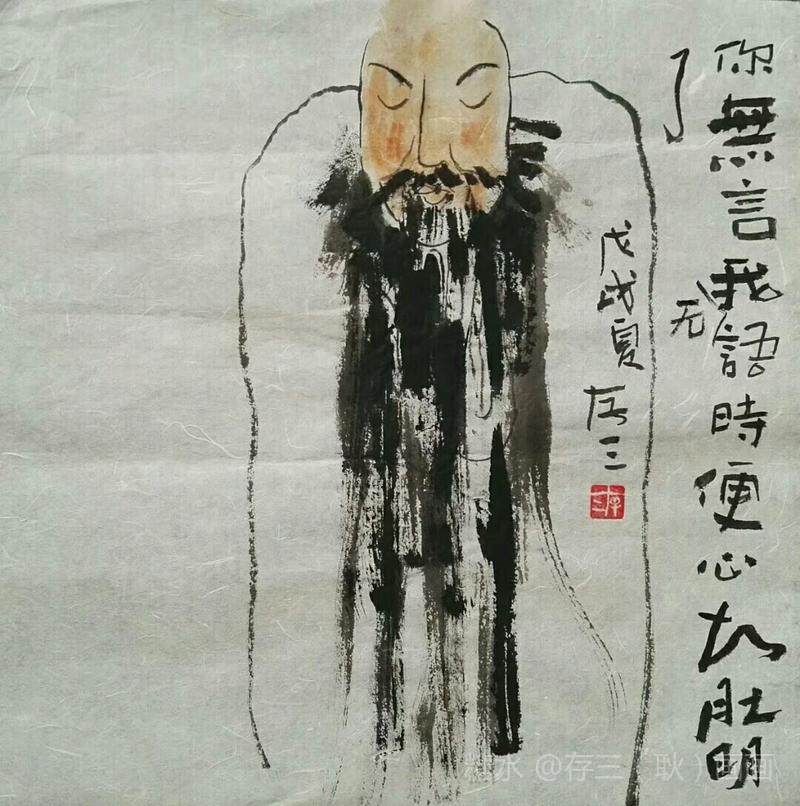 你無言我无語時便心知肚明
了
戊戌夏
存三
存三
@存三（耿）画画